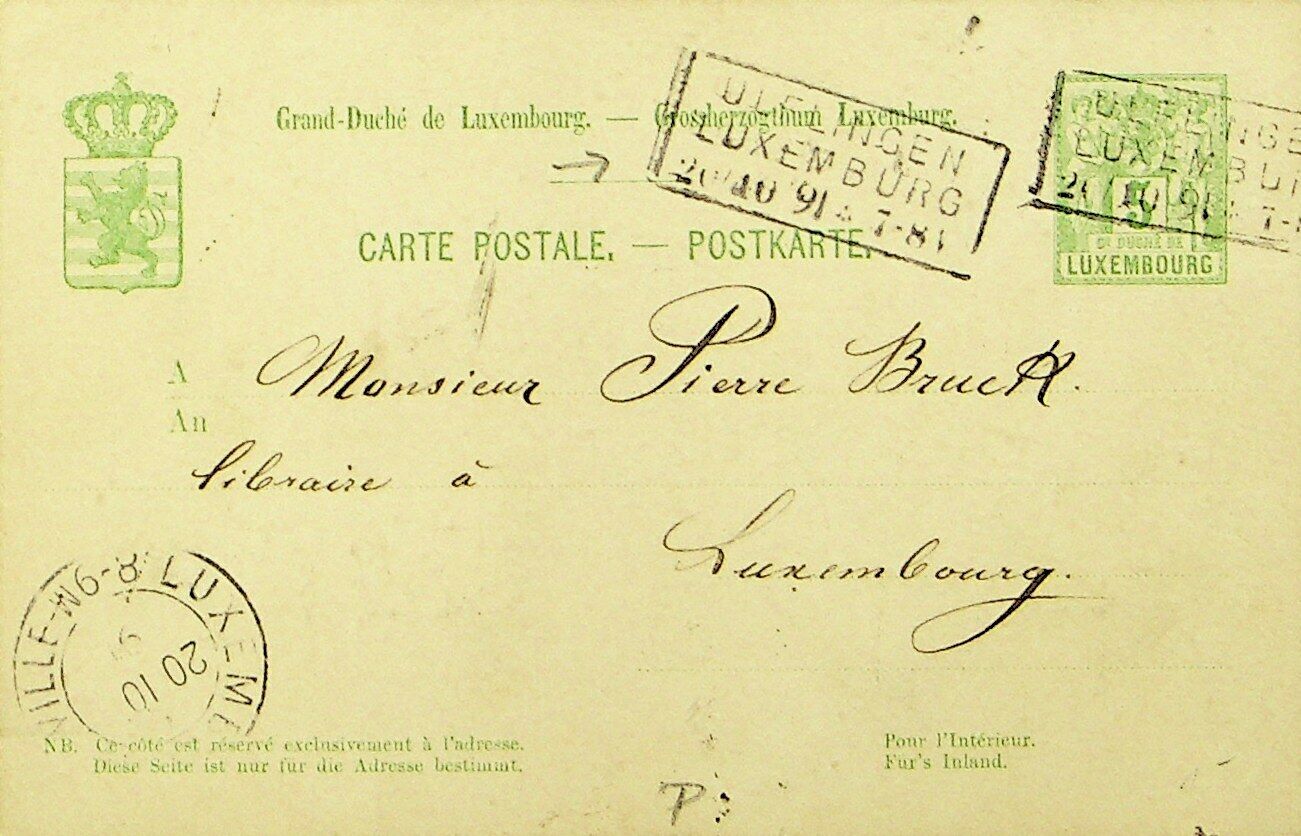 Grand-Duché de Luxembourg. — Grossherzogthum Luxemburg.
ULFLINGEN
LUXEMBURG
20/10 91 7-8
CARTE POSTALE. — POSTKARTE.
ULFLINGE
LUXEMBU
20 10 91 7-
5
GD DUCHÉ DE
LUXEMBOURG
A Monsieur Pierre Bruck.
An
libraire à
Luxembourg.
LUXEMB
VILLE
8-9
20 10
NB. Ce côté est réservé exclusivement à l'adresse.
Diese Seite ist nur für die Adresse bestimmt.
Pour l'Intérieur.
Für's Inland.
P